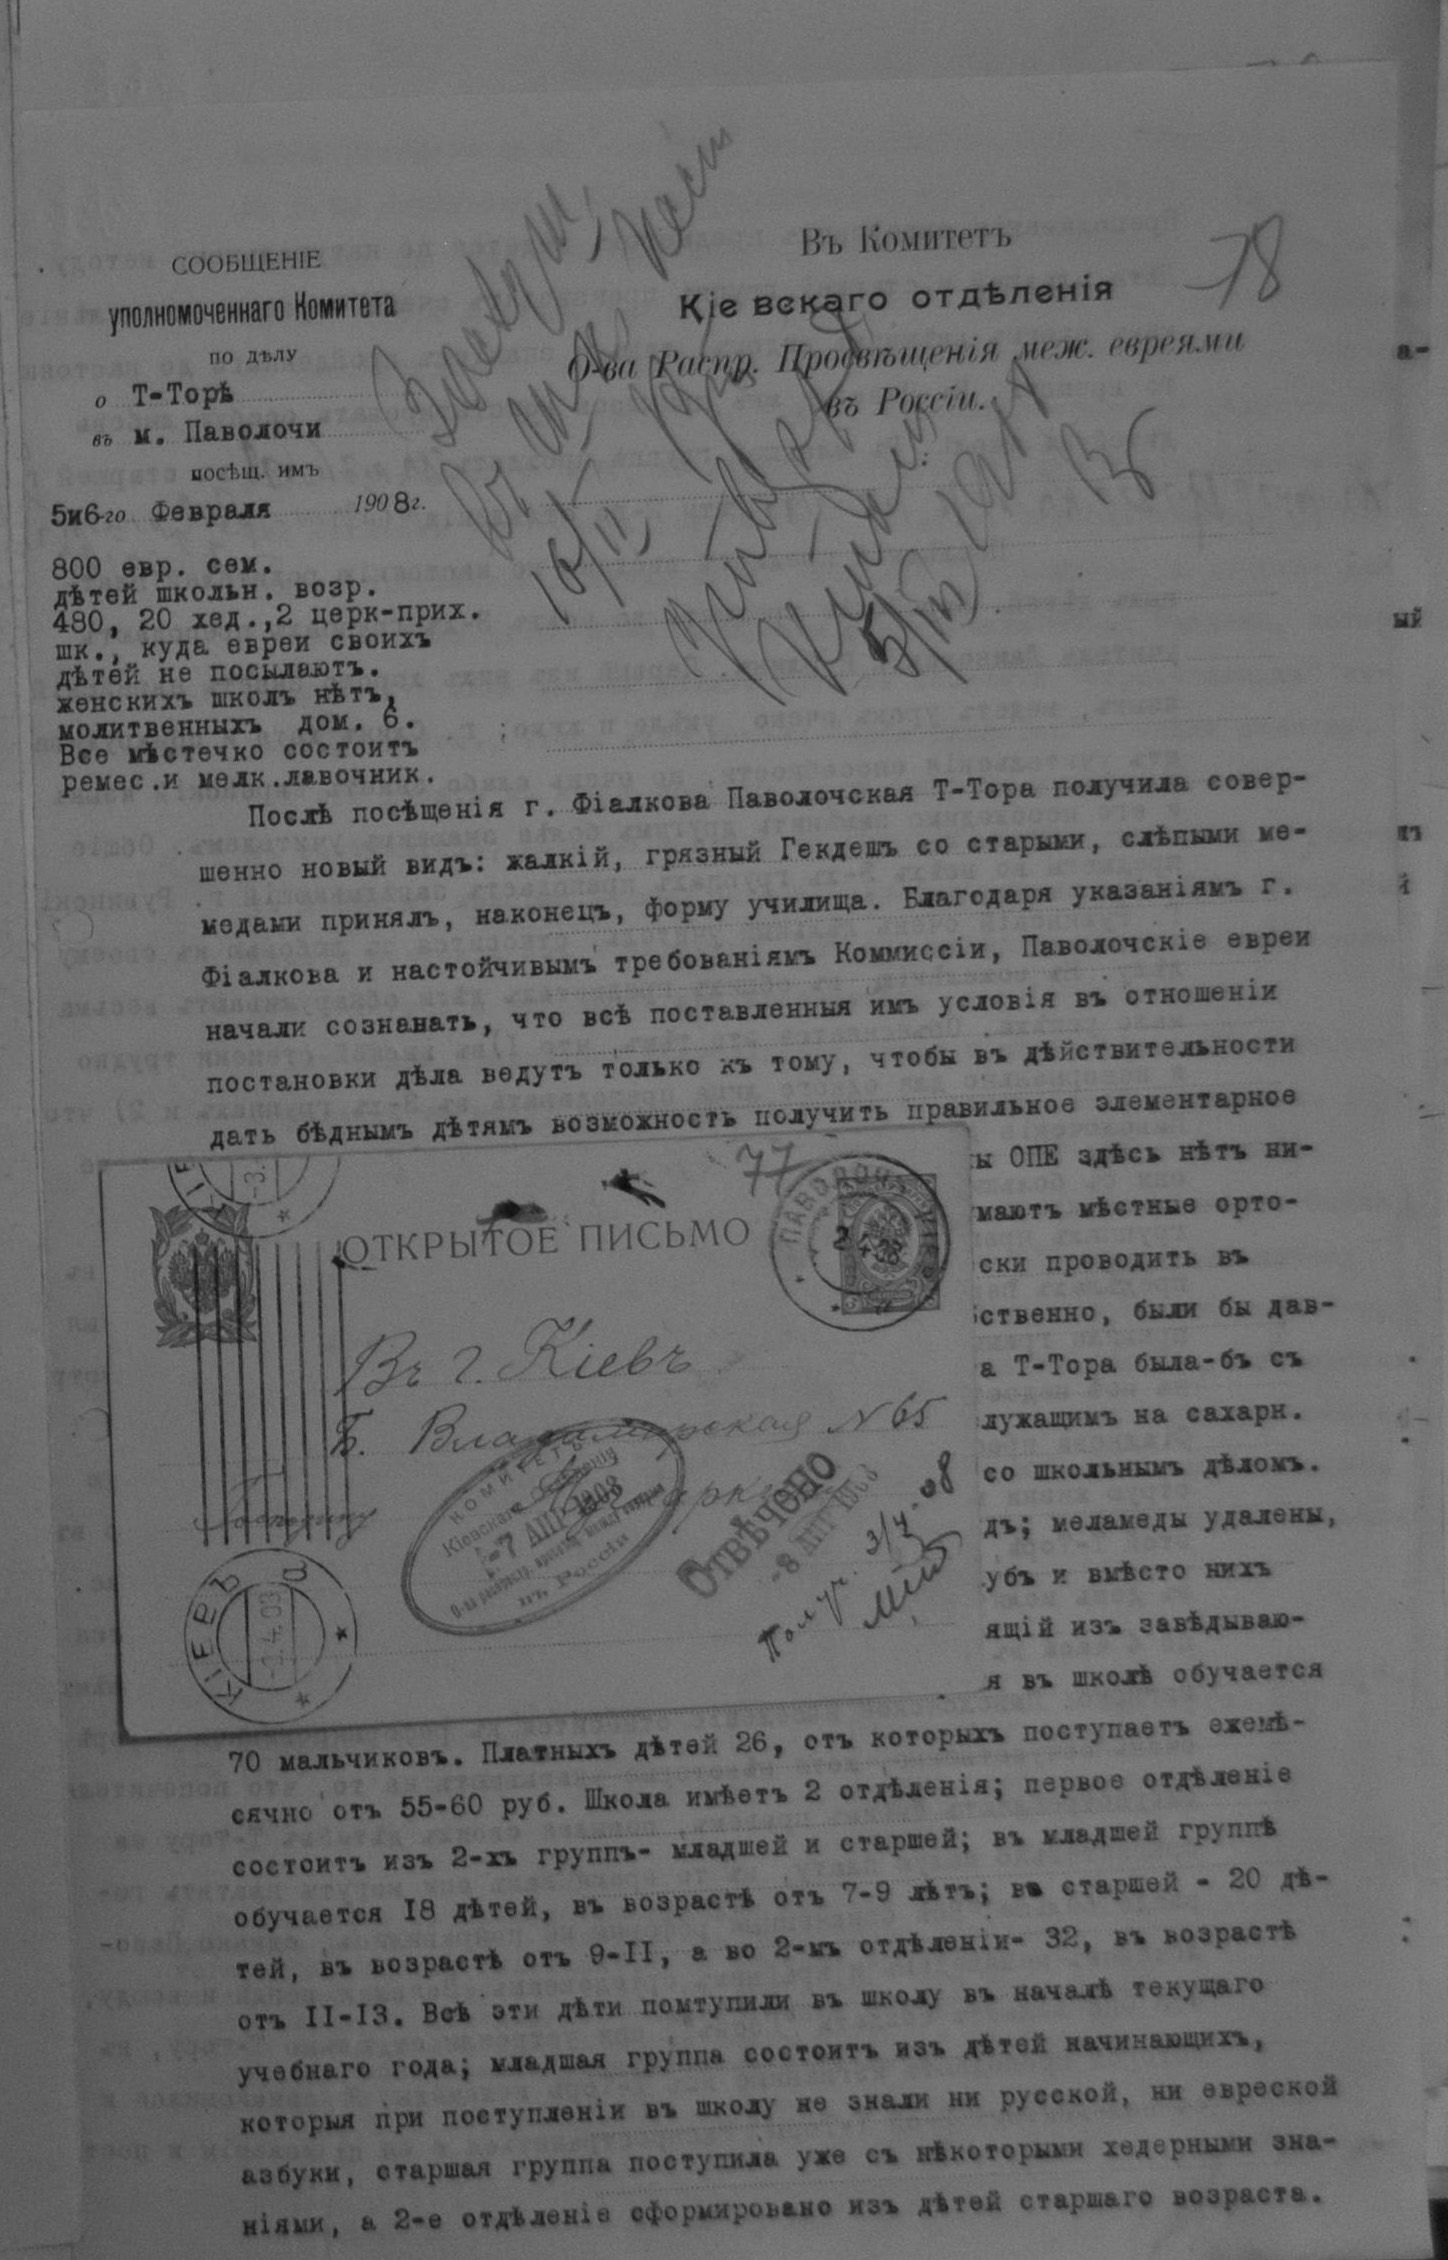 78
СООБЩЕНІЕ
уполномоченнаго Комитета
по дѣлу
о Т-Торѣ
въ м. Паволочи
посѣщ. имъ
5и6-го Февраля 1908г.
Въ Комитетъ
Кіевскаго отдѣленія
О-ва Распр. Просвѣщенія меж. евреями
въ Россіи.
16/II
800 евр. сем.
дѣтей школьн. возр.
480, 20 хед.,2 церк-прих.
шк., куда евреи своихъ
дѣтей не посылаютъ.
женскихъ школъ нѣтъ,
молитвенныхъ дом. 6.
Все мѣстечко состоитъ
ремес.и мелк.лавочник.
Послѣ посѣщенія г. Фіалкова Паволочская Т-Тора получила совер-
шенно новый видъ: жалкій, грязный Гекдешъ со старыми, слѣпыми ме-
медами принялъ, наконецъ, форму училища. Благодаря указаніямъ г.
Фіалкова и настойчивымъ требованіямъ Коммиссіи, Паволочскіе евреи
начали сознавать, что всѣ поставленныя имъ условія въ отношеніи
постановки дѣла ведутъ только къ тому, чтобы въ дѣйствительности
дать бѣднымъ дѣтямъ возможность получить правильное элементарное
ы ОПЕ здѣсь нѣтъ ни-
маютъ мѣстные орто-
ски проводить въ
ственно, были бы дав-
а Т-Тора была-бъ съ
лужащимъ на сахарн.
со школьнымъ дѣломъ.
дъ; меламеды удалены,
убъ и вмѣсто нихъ
ящій изъ завѣдываю-
я въ школѣ обучается
77
ОТКРЫТОЕ ПИСЬМО
ПАВОЛОЧ
Въ г. Кіевъ
Б. Владимирская N 65
Господину
КОМИТЕТЪ
Кіевскаго
-7 АПР 1908
въ Россіи
Отвѣчено
-8 АПР 1908
Получ. 3/4.08
КІЕВЪ
70 мальчиковъ. Платныхъ дѣтей 26, отъ которыхъ поступаетъ ежемѣ-
сячно отъ 55-60 руб. Школа имѣетъ 2 отдѣленія; первое отдѣленіе
состоитъ изъ 2-хъ группъ- младшей и старшей; въ младшей группѣ
обучается I8 дѣтей, въ возрастѣ отъ 7-9 лѣтъ; въ старшей - 20 дѣ-
тей, въ возрастѣ отъ 9-II, а во 2-мъ отдѣленіи- 32, въ возрастѣ
отъ II-I3. Всѣ эти дѣти помтупили въ школу въ началѣ текущаго
учебнаго года; младшая группа состоитъ изъ дѣтей начинающихъ,
которыя при поступленіи въ школу не знали ни русской, ни евреской
азбуки, старшая группа поступила уже съ нѣкоторыми хедерными зна-
ніями, а 2-е отдѣленіе сформировано изъ дѣтей старшаго возраста.